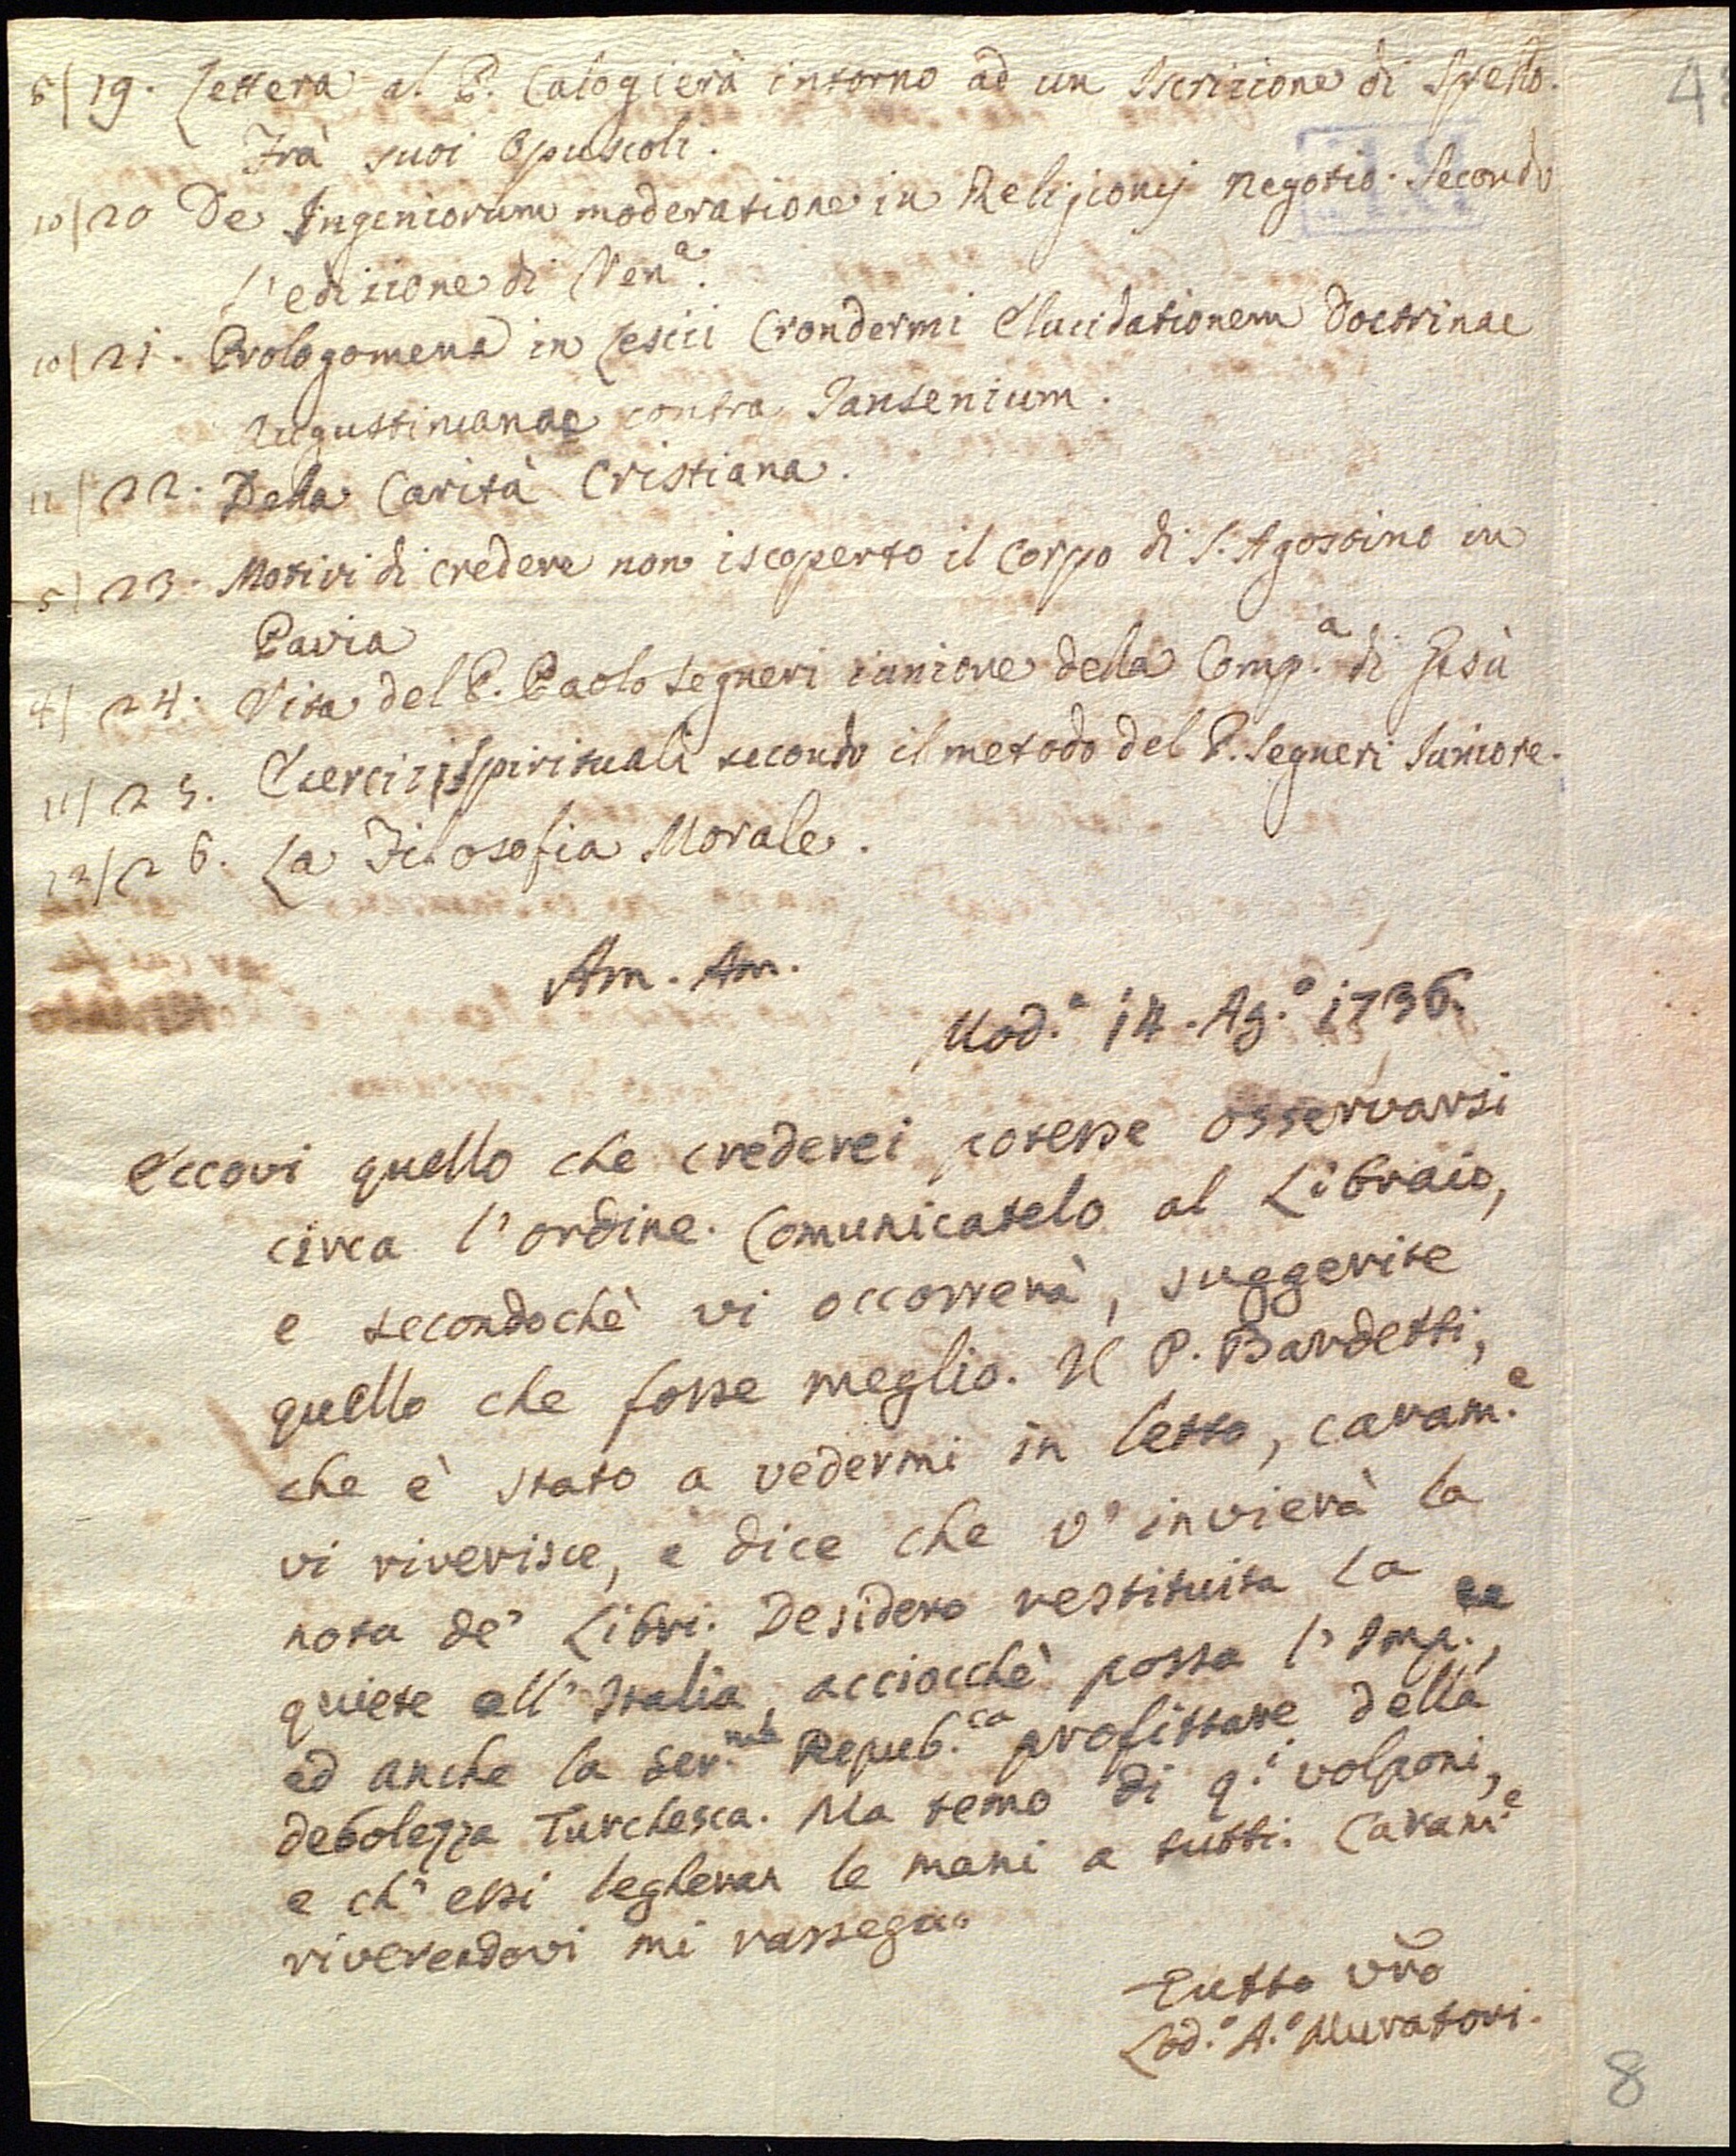 5/ 19. Lettera al P. Calogierà intorno ad un Iscrizione di Spello.
Frà suoi Opuscoli.
10/ 20 De Ingeniorum moderatione in Religionis negotio. Secondo
l'edizione di Ven.a
10/ 21. Prologomena in Lesiii Crondermi Elucidationem Doctrinae
Augustinianae contra Jansenium.
11/ 22. Della Carità Cristiana.
5/ 23. Motivi di credere non iscoperto il Corpo di S. Agostino in
Pavia
4/ 24. Vita del P. Paolo Segneri iuniore della Comp.a di Gesù
11/ 25. Esercizi Spirituali secondo il metodo del P. Segneri Juniore.
12/ 26. La Filosofia Morale.
Am. Am.
Mod.a 14. Ag.o 1736.
Eccovi quello che crederei potesse osservarsi
circa l'ordine. Comunicatelo al Libraio,
e secondochè vi occorrerà, suggerite
quello che fosse meglio. Il P. Bardetti,
che è stato a vedermi in letto, caram.e
vi riverisce, e dice che v'invierà la
nota de' Libri. Desidero restituita la
quiete all'Italia, acciocchè possa l'Imp.re,
ed anche la Ser.ma Repub.ca profittare della
debolezza Turchesca. Ma temo di q.i volponi,
e ch'essi legheran le mani a tutti. Caram.e
riverendovi mi rassegno
Tutto vro
Lod.o A.o Muratori.
8